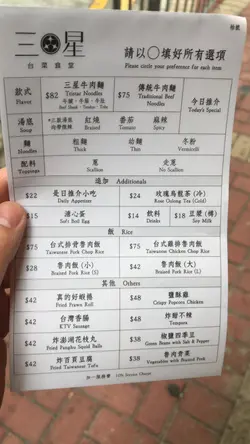 三星
台菜食堂
請以〇填好所有選項
Please circle your preference for each item
款式
Flavor
$82
三星牛肉麵
Tristar Noodles
$75
傳統牛肉麵
Traditional Beef Noodles
今日推介
Today's Special
湯底
Soup
紅燒
Braised
番茄
Tomato
麻辣
Spicy
麵
Noodles
粗麵
Thick
幼麵
Thin
冬粉
Vermicelli
配料
Toppings
蔥
Scallion
走蔥
No Scallion
追加 Additionals
$22
是日推介小吃
Daily Appetizer
$24
玫瑰烏龍茶 (冷)
Rose Oolong Tea (Cold)
$15
溏心蛋
Soft Boil Egg
$14
飲料
Drinks
$18
豆漿 (樽)
Soy Milk
飯 Rice
$75
台式排骨魯肉飯
Taiwanese Pork Chop Rice
$75
台式雞排魯肉飯
Taiwanese Chicken Chop Rice
$28
魯肉飯 (小)
Braised Pork Rice (S)
$42
魯肉飯 (大)
Braised Pork Rice (L)
其他 Others
$42
真的好蝦捲
Fried Prawn Roll
$48
鹽酥雞
Crispy Popcorn Chicken
$42
台灣香腸
KTV Sausage
$48
炸甜不辣
Tempura
$42
炸澎湖花枝丸
Fried Penghu Squid Balls
$38
椒鹽四季豆
Green Beans with Salt & Pepper
$42
炸百頁豆腐
Fried Taiwanese Tofu
$38
魯肉青菜
Vegetables with Braised Pork
加一服務費 10% Service Charge